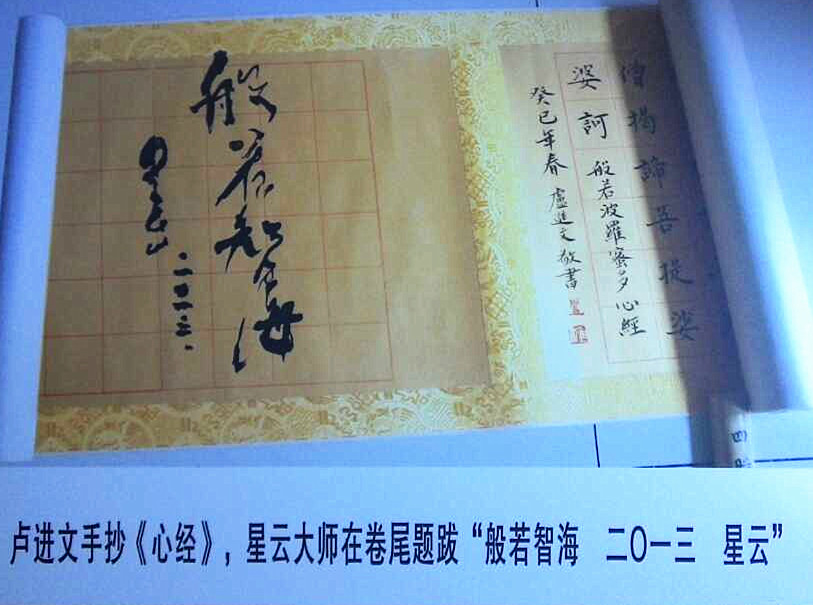 僧揭諦菩提娑
婆訶 般若波羅蜜多心經
癸巳年春 盧進文敬書
般若智海
星云
二〇一三.
卢进文手抄《心经》，星云大师在卷尾题跋“般若智海 二〇一三 星云”